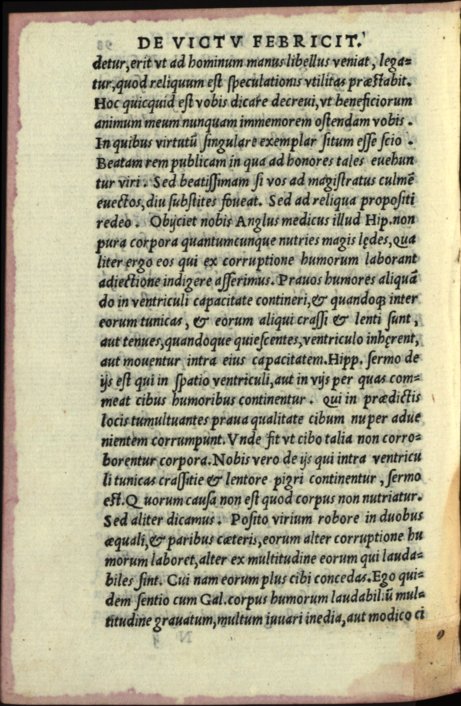 DE VICTV FEBRICIT.
detur,erit vt ad hominum manus libellus veniat, lega-
tur,quod reliquum est speculationis vtilitas præstabit.
Hoc quicquid est vobis dicare decreui,vt beneficiorum
animum meum nunquam immemorem ostendam vobis.
In quibus virtutũ singulare exemplar situm esse scio .
Beatam rem publicam in qua ad honores tales euehun
tur viri. Sed beatissimam si vos ad magistratus culmẽ
euectos,diu substites foueat. Sed ad reliqua propositi
redeo. Obijciet nobis Anglus medicus illud Hip.non
pura corpora quantumcunque nutries magis lędes,qua
liter ergo eos qui ex corruptione humorum laborant
adiectione indigere asserimus. Prauos humores aliquã
do in ventriculi capacitate contineri,& quandoq; inter
eorum tunicas, & eorum aliqui crassi & lenti sunt,
aut tenues,quandoque quiescentes,ventriculo inhęrent,
aut mouentur intra eius capacitatem.Hipp. sermo de
ijs est qui in spatio ventriculi,aut in vijs per quas com-
meat cibus humoribus continentur. Qui in prædictis
locis tumultuantes praua qualitate cibum nuper adue
nientem corrumpunt. Vnde fit vt cibo talia non corro-
borentur corpora. Nobis vero de ijs qui intra ventricu
li tunicas crassitie & lentore pigri continentur, sermo
est.Q uorum causa non est quod corpus non nutriatur.
Sed aliter dicamus. Posito virium robore in duobus
æquali,& paribus cæteris,eorum alter corruptione hu
morum laboret,alter ex multitudine eorum qui lauda-
biles sint. Cui nam eorum plus cibi concedas. Ego qui-
dem sentio cum Gal.corpus humorum laudabiliũ mul-
titudine grauatum,multum iuuari inedia,aut modico ci